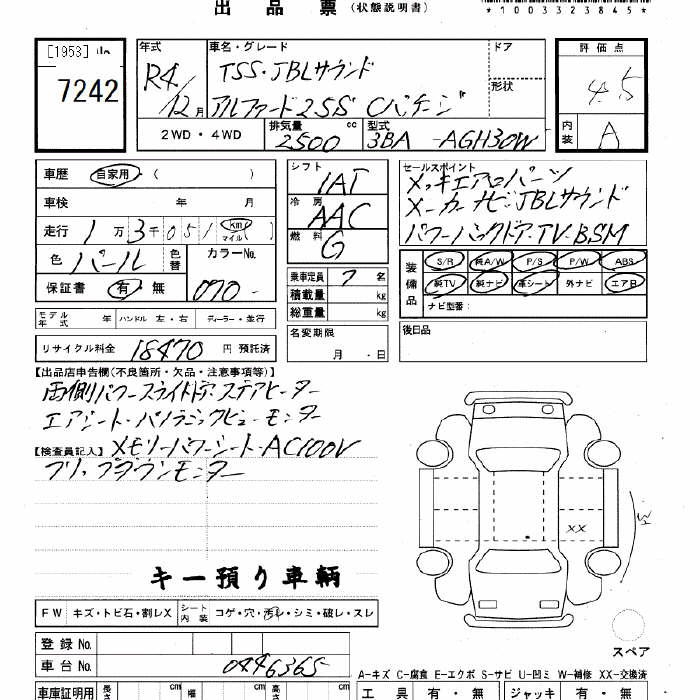 出品票 (状態説明書)
*1003323845*
[1953] 山
7242
年式 R4 / 12月
車名・グレード TSS・JBLサウンド
アルファード25S Cパッケージ
ドア
形状
評価点 4.5
内装 A
2WD・4WD
排気量 2500 cc
型式 3BA -AGH30W
車歴 自家用 ( )
車検 年 月
走行 1万3千051 km マイル ( )
色 パール 色替 カラーNo. 070-
保証書 有・無
シフト IAT
冷房 AAC
燃料 G
乗車定員 7 名
積載量 kg
総重量 kg
名変期限
月・日
セールスポイント
メッキエアロパーツ
メーカーナビ・JBLサウンド
パワーバックドア・TV-BSM
装備品 S/R 純A/W P/S P/W ABS
純TV 純ナビ 革シート 外ナビ エアB
ナビ型番:
後日品
モデル年式 年 ハンドル 左・右 ディーラー・並行
リサイクル料金 18470 円 預託済
【出品店申告欄(不良箇所・欠品・注意事項等)】
両側パワースライドドア・ステアヒーター
エアシート・パノラミックビューモニター
【検査員記入】 メモリーパワーシート・AC100V
フリップダウンモニター
キー預り車輌
XX
W
FW キズ・トビ石・割レX シート内装 コゲ・穴・汚レ・シミ・破レ・スレ
登録No.
車台No. 0446365
スペア
A-キズ C-腐食 E-エクボ S-サビ U-凹ミ W-補修 XX-交換済
車庫証明用 長さ cm 幅 cm cm
工具 有・無 ジャッキ 有・無